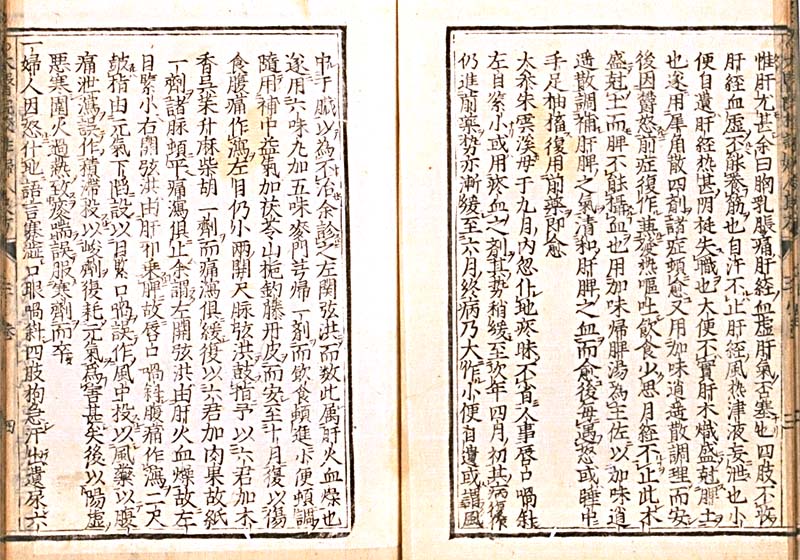 惟肝尤甚余曰胸乳脹痛肝經血虛肝氣否塞也四肢不收
肝經血虛不能養筋也自汗不止肝經風熱津液妄泄也小
便自遺肝經熱甚陰挺失職也大便不實肝木熾盛尅脾土
也遂用犀角散四劑諸症頓愈又用加味逍遙散調理而安
後因鬱怒前症復作兼發熱嘔吐飲食少思月經不止此木
盛尅土而脾不能攝血也用加味歸脾湯為主佐以加味逍
遙散調補肝脾之氣清和肝脾之血而愈後每遇怒或睡中
手足抽搐復用前藥即愈
太乘朱雲溪母于九月內忽仆地痰昧不省人事唇口喎斜
左目緊小或用痰血之劑其勢稍緩至次年四月初其病復作
仍進前藥勢亦漸緩至六月終病乃大作小便自遺或謂風
中于臟以為不治余診之左關弦洪而數此属肝火血燥也
遂用六味丸加五味麥門芎歸一劑而飲食頓進小便頓調
隨用補中益氣加茯苓山梔鈎藤丹皮而安至十月復以傷
食腹痛作瀉左目仍小兩關尺脈弦洪鼓指予以六君加木
香吳茱升麻柴胡一劑而痛瀉俱緩復以六君加肉果故紙
一劑諸脈頓平痛瀉俱止余謂左關弦洪由肝火血燥故左
目緊小右關弦洪由肝邪乘脾故唇口喎斜腹痛作瀉二尺
鼓指由元氣下陷設以目緊口喎誤作風中投以風藥以腹
痛泄瀉誤作積滯投以峻劑復耗元氣為害甚矣後以陽虛
惡寒圍火過熱致痰喘誤服寒劑而卒
一婦人因怒仆地語言蹇澁口眼喎斜四肢拘急汗出遺尿六
四